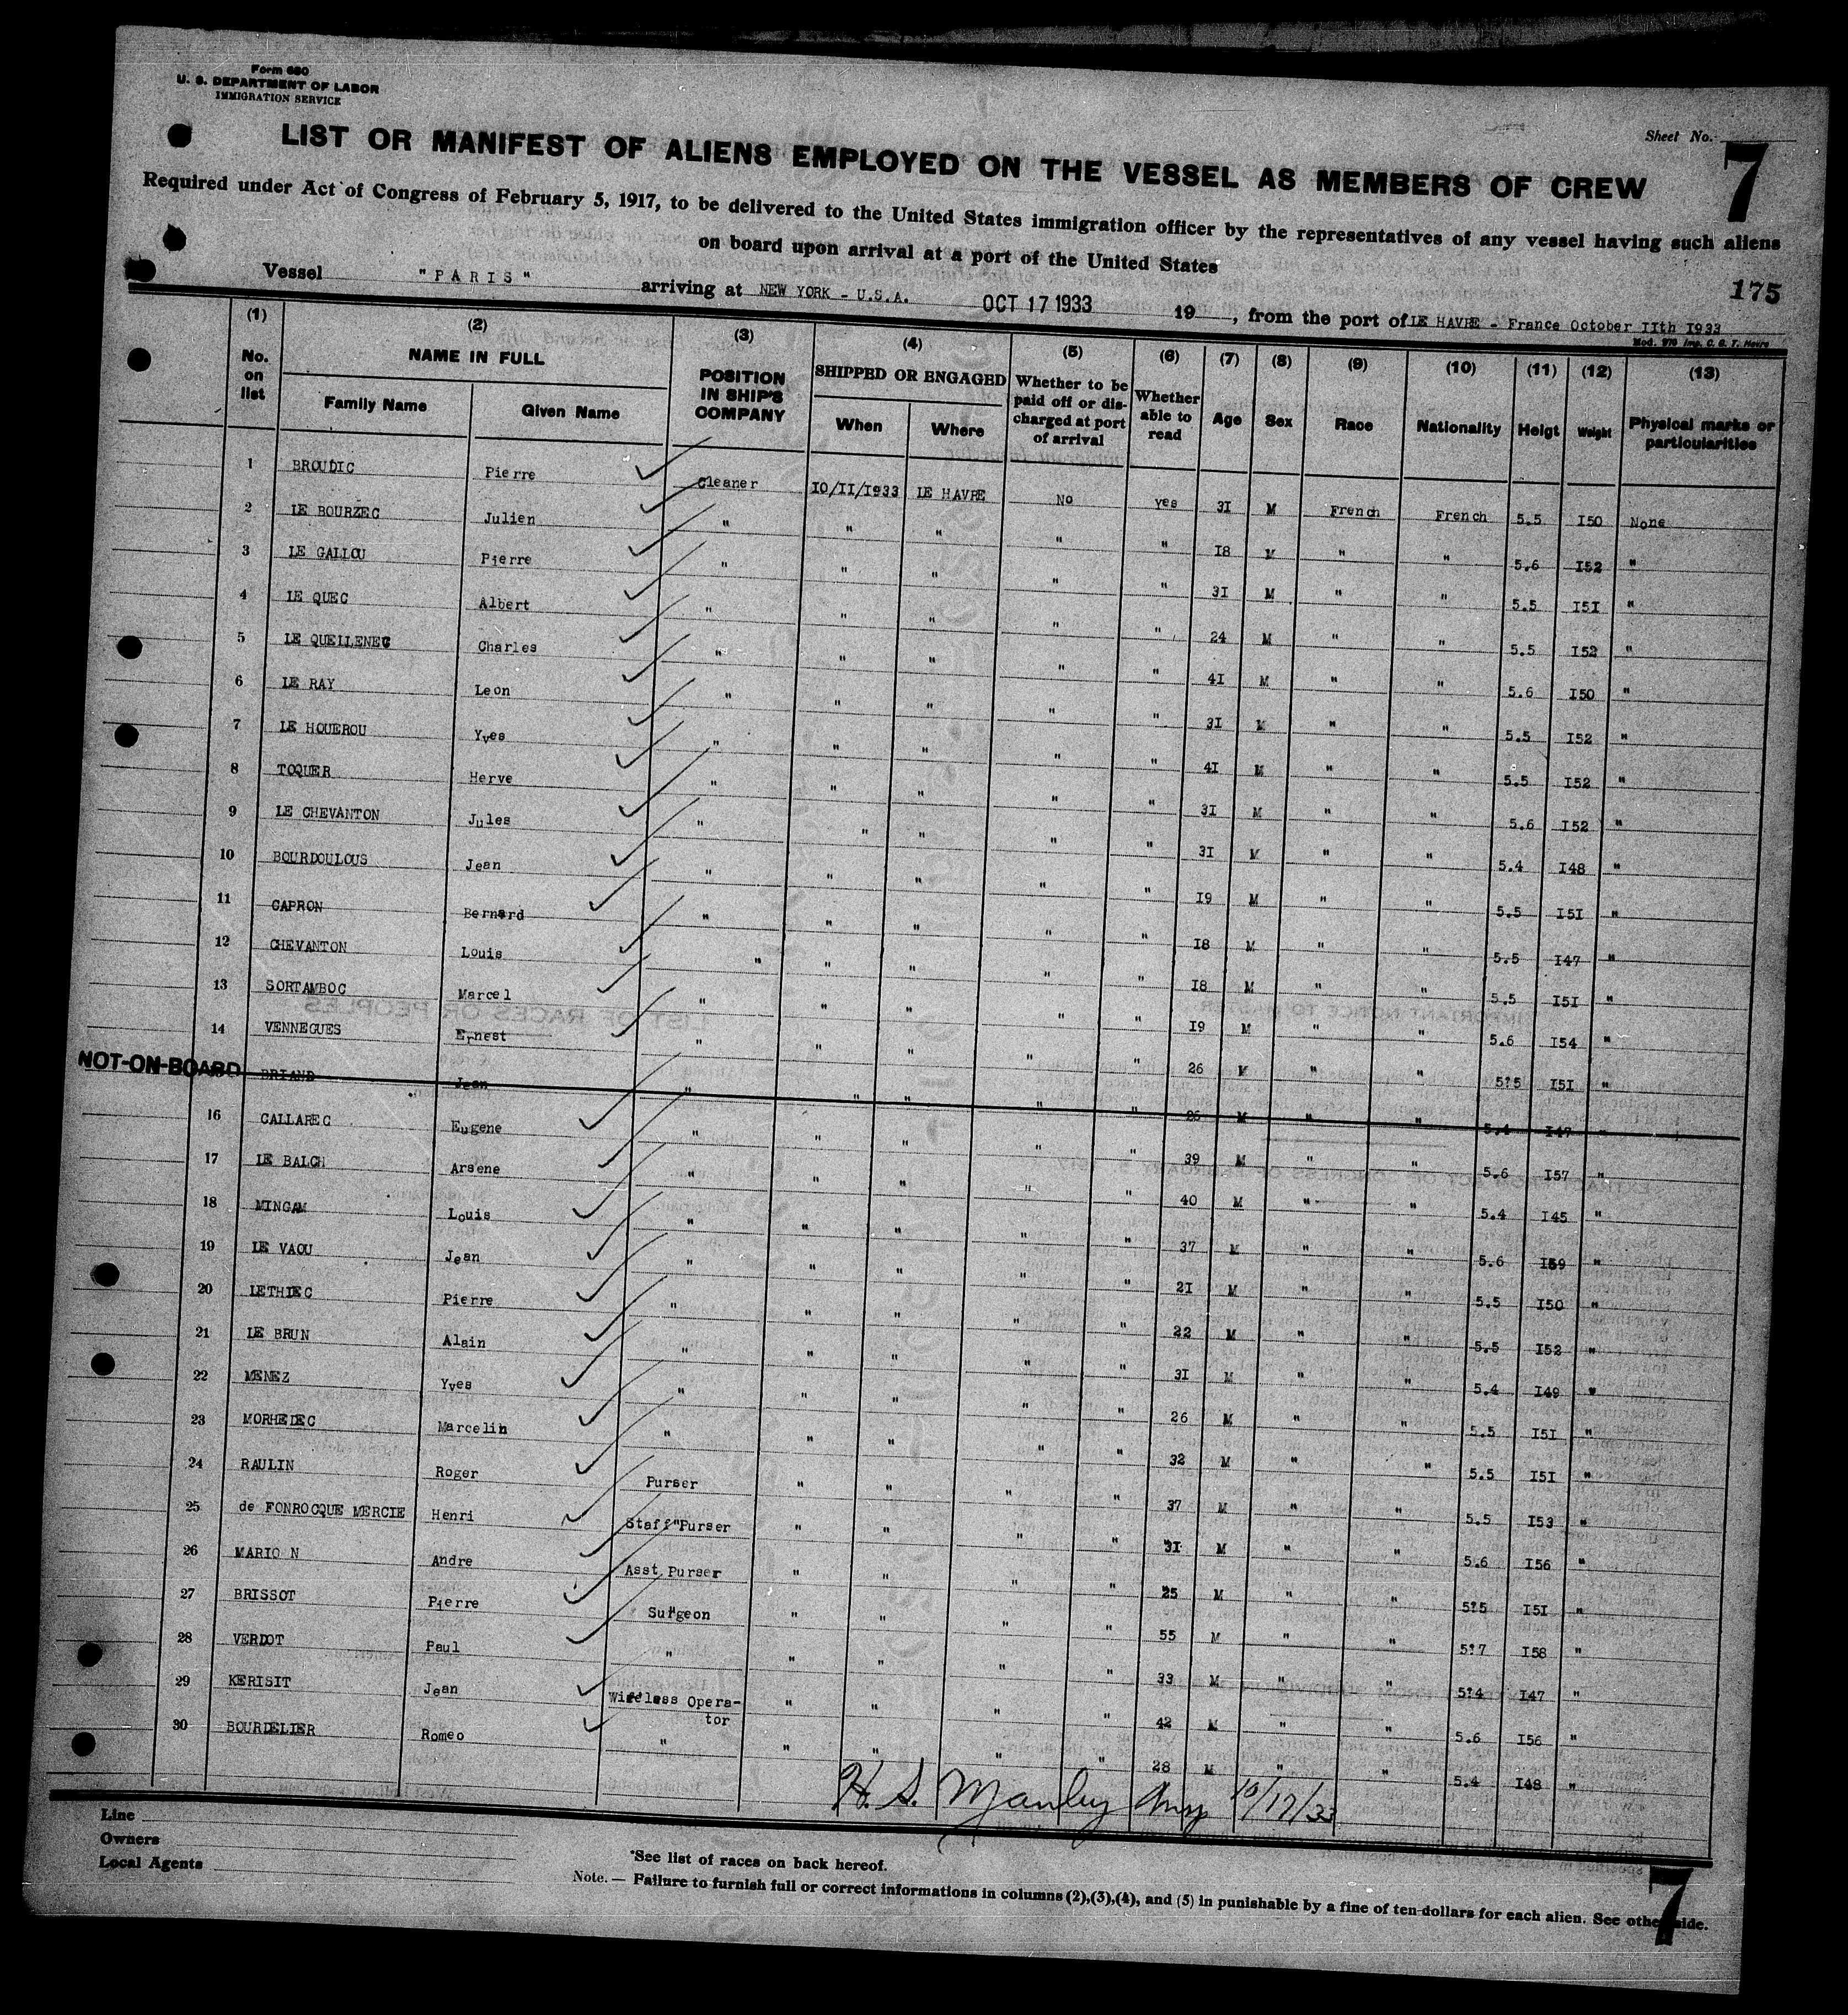 Form 680
U. S. DEPARTMENT OF LABOR
IMMIGRATION SERVICE
Sheet No. 7
LIST OR MANIFEST OF ALIENS EMPLOYED ON THE VESSEL AS MEMBERS OF CREW
Required under Act of Congress of February 5, 1917, to be delivered to the United States immigration officer by the representatives of any vessel having such aliens
on board upon arrival at a port of the United States
175
Vessel "PARIS" arriving at NEW YORK - U.S.A. OCT 17 1933 19 , from the port of LE HAVRE - France October IIth I933
Mod. 976 Imp. C. G. T. Havre
(1) (2) (3) (4) (5) (6) (7) (8) (9) (10) (11) (12) (13)
No. on list NAME IN FULL Family Name Given Name POSITION IN SHIP'S COMPANY SHIPPED OR ENGAGED When Where Whether to be paid off or discharged at port of arrival Whether able to read Age Sex Race Nationality Heigt Weight Physical marks or particularities
1 BROUDIC Pierre Cleaner IO/II/I933 LE HAVRE No yes 3I M French French 5.5 I50 None
2 LE BOURZEC Julien " " " " " I8 M " " 5.6 I52 "
3 LE GALLOU Pierre " " " " " 3I M " " 5.5 I5I "
4 LE QUEC Albert " " " " " 24 M " " 5.5 I52 "
5 LE QUELLENEC Charles " " " " " 4I M " " 5.6 I50 "
6 LE RAY Leon " " " " " 3I M " " 5.5 I52 "
7 LE HOUEROU Yves " " " " " 4I M " " 5.5 I52 "
8 TOQUER Herve " " " " " 3I M " " 5.6 I52 "
9 LE CHEVANTON Jules " " " " " 3I M " " 5.4 I48 "
10 BOURDOULOUS Jean " " " " " I9 M " " 5.5 I5I "
11 CAPRON Bernard " " " " " I8 M " " 5.5 I47 "
12 CHEVANTON Louis " " " " " I8 M " " 5.5 I5I "
13 SORTAMBOC Marcel " " " " " I9 M " " 5.6 I54 "
14 VENNEGUES Ernest " " " " " 26 M " " 5:5 I5I "
NOT-ON-BOARD BRIAND Jean " " " " " 26 M " " 5.4 I47 "
16 CALLAREC Eugene " " " " " 39 M " " 5.6 I57 "
17 LE BALCH Arsene " " " " " 40 M " " 5.4 I45 "
18 MINGAM Louis " " " " " 37 M " " 5.6 I59 "
19 LE VAOU Jean " " " " " 2I M " " 5.5 I50 "
20 LETHIEC Pierre " " " " " 22 M " " 5.5 I52 "
21 LE BRUN Alain " " " " " 3I M " " 5.4 I49 "
22 MENEZ Yves " " " " " 26 M " " 5.5 I5I "
23 MORHEDEC Marcelin " " " " " 32 M " " 5.5 I5I "
24 RAULIN Roger Purser " " " " 37 M " " 5.5 I53 "
25 de FONROCQUE MERCIE Henri Staff Purser " " " " 3I M " " 5.6 I56 "
26 MARION Andre Asst Purser " " " " 25 M " " 5:5 I5I "
27 BRISSOT Pierre Surgeon " " " " 55 M " " 5:7 I58 "
28 VERDOT Paul " " " " " 33 M " " 5:4 I47 "
29 KERISIT Jean Wireless Operator " " " " 42 M " " 5.6 I56 "
30 BOURDELIER Romeo " " " " " 28 M " " 5.4 I48 "
H. S. Manley 10/17/33
Line
Owners
Local Agents
*See list of races on back hereof.
Note. — Failure to furnish full or correct informations in columns (2),(3),(4), and (5) in punishable by a fine of ten dollars for each alien. See other side.
7